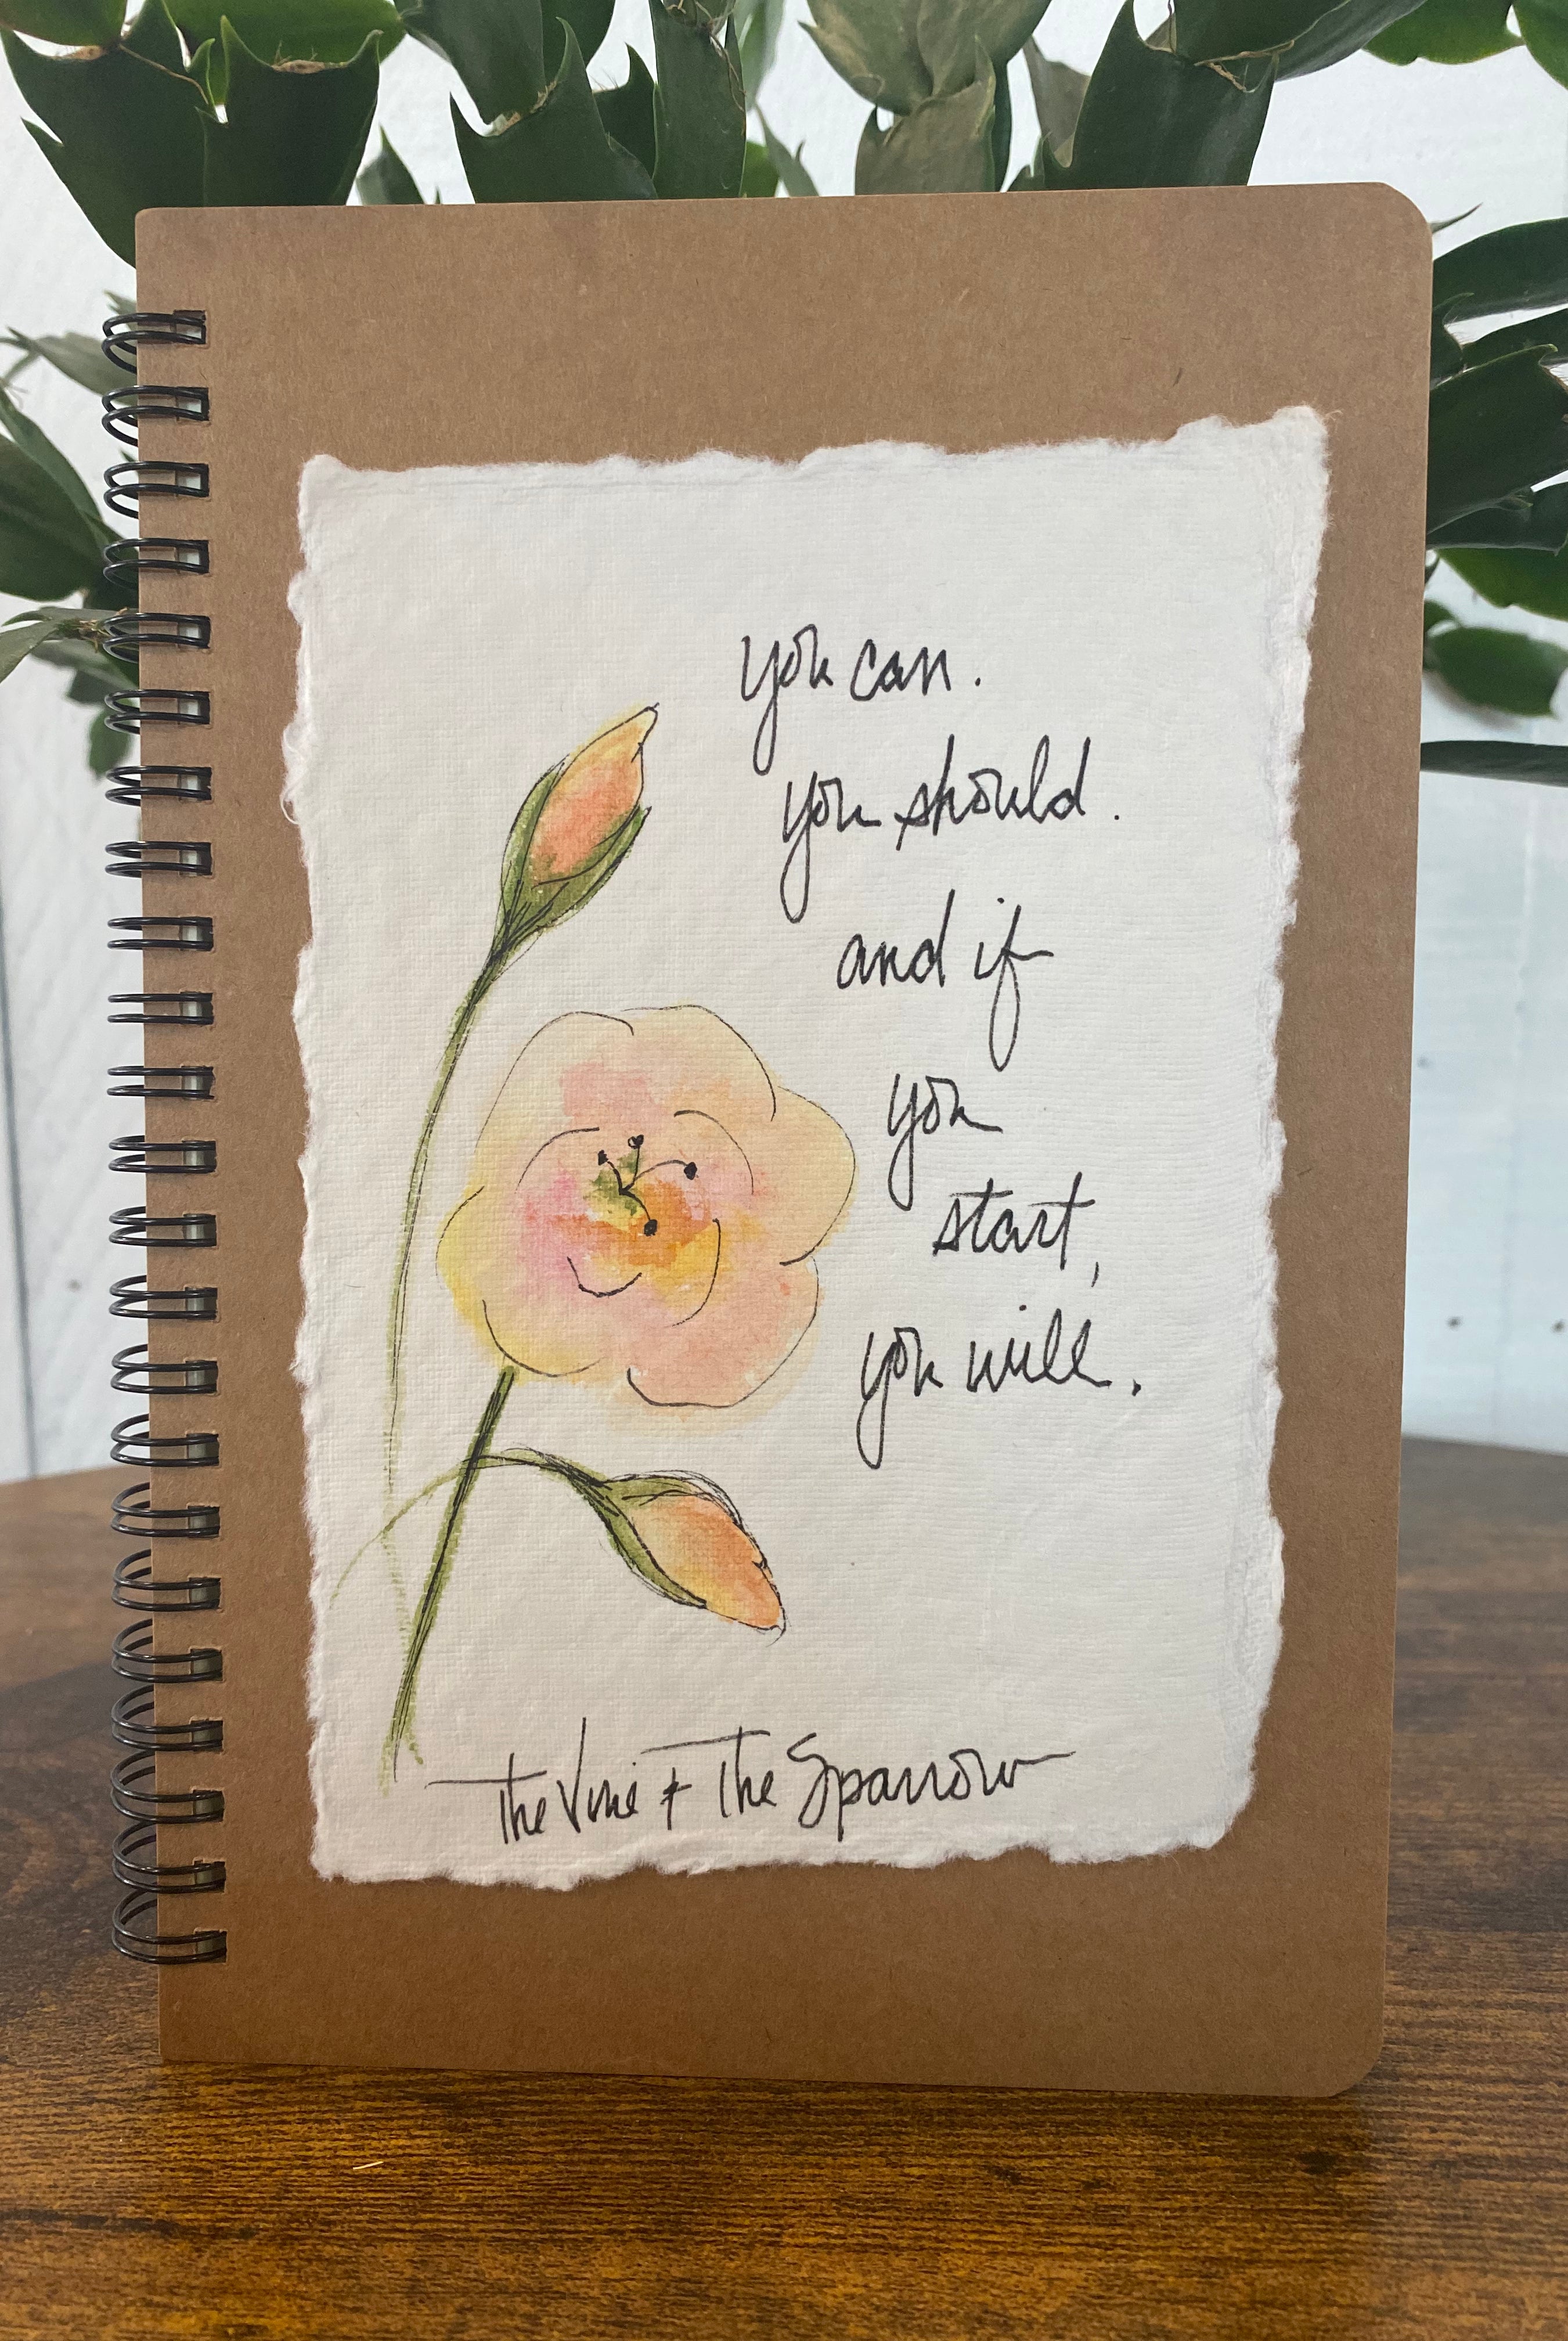 you can.
you should.
and if
you
start,
you will.
The Vine + The Sparrow